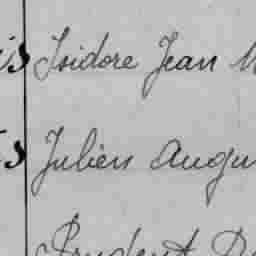 is Isidore Jean
is Julien Augu
Prudent